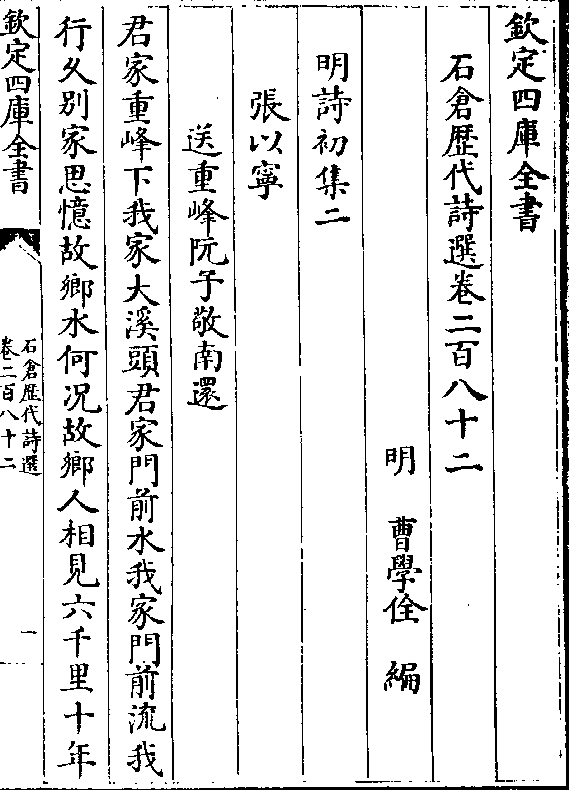 欽定四庫全書
石倉歴代詩選卷二百八十二
明　曹學佺　編
明詩初集二
張以寧
送重峰阮子敬南還
君家重峰下我家大溪頭君家門前水我家門前流我
行久別家思憶故鄉水何况故鄉人相見六千里十年
欽定四庫全書
石倉歴代詩選
卷二百八十二
一